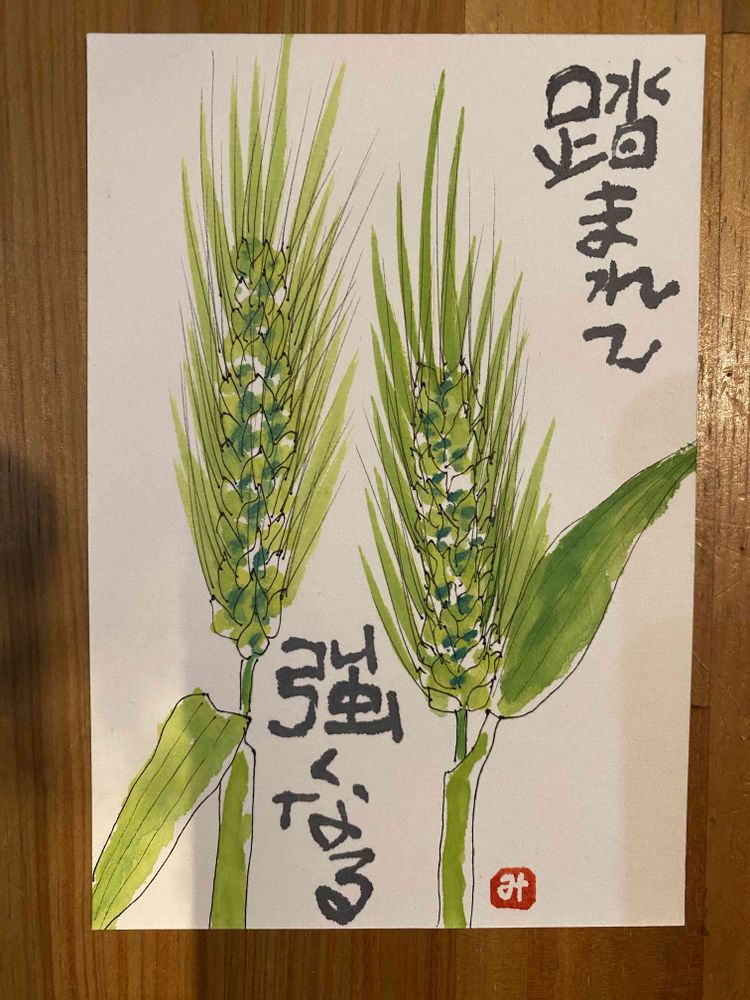 踏まれて
強くなる
み